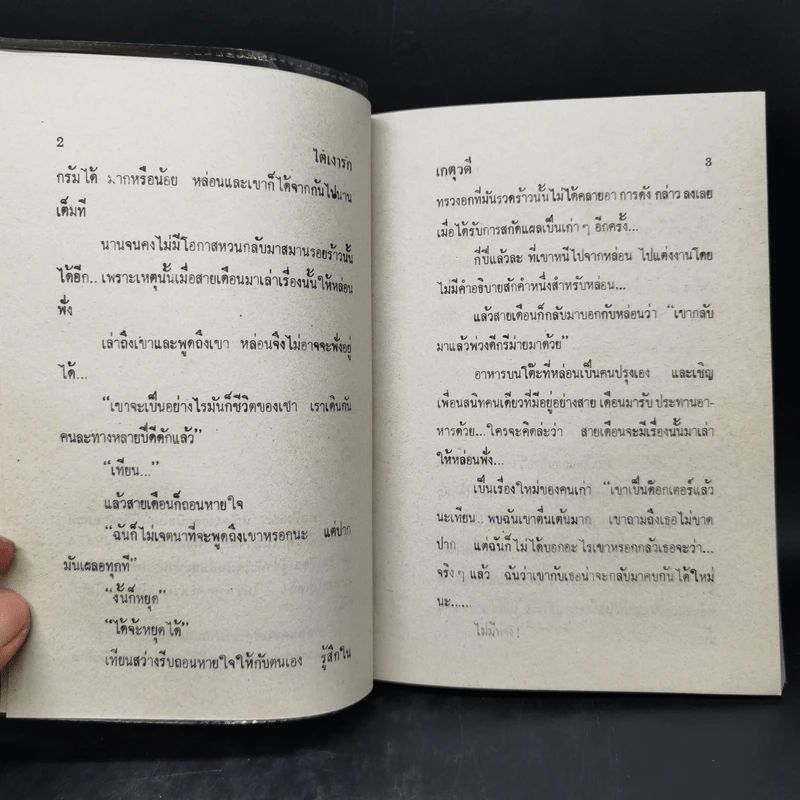 2
ใต้เงารัก
กรัมได้ มากหรือน้อย หล่อนและเขาก็ได้จากกันไปนาน
เต็มที
นานจนคงไม่มีโอกาสหวนกลับมาสมานรอยร้าวนั้น
ได้อีก.. เพราะเหตุนั้นเมื่อสายเดือนมาเล่าเรื่องนั้นให้หล่อน
ฟัง
เล่าถึงเขาและพูดถึงเขา หล่อนจึงไม่อาจจะฟังอยู่
ได้...
“เขาจะเป็นอย่างไรมันก็ชีวิตของเขา เราเดินกัน
คนละทางหลายปีดีดักแล้ว”
“เทียน...”
แล้วสายเดือนก็ถอนหายใจ
“ฉันก็ไม่เจตนาที่จะพูดถึงเขาหรอกนะ แต่ปาก
มันเผลอทุกที”
“งั้นก็หยุด”
“ได้จ้ะหยุดได้”
เทียนสว่างรีบถอนหายใจให้กับตนเอง รู้สึกใน
เกตุวดี
3
ทรวงอกที่มันรวดร้าวนั้นไม่ได้คลายอาการดังกล่าวลงเลย
เมื่อได้รับการสกัดแผลเป็นเก่าๆ อีกครั้ง...
กี่ปีแล้วละ ที่เขาหนีไปจากหล่อน ไปแต่งงานโดย
ไม่มีคำอธิบายสักคำหนึ่งสำหรับหล่อน...
แล้วสายเดือนก็กลับมาบอกกับหล่อนว่า “เขากลับ
มาแล้วพ่วงดีกรีม่ายมาด้วย”
อาหารบนโต๊ะที่หล่อนเป็นคนปรุงเอง และเชิญ
เพื่อนสนิทคนเดียวที่มีอยู่อย่างสายเดือนมารับประทานอา-
หารด้วย... ใครจะคิดล่ะว่า สายเดือนจะมีเรื่องนั้นมาเล่า
ให้หล่อนฟัง...
เป็นเรื่องใหม่ของคนเก่า “เขาเป็นด๊อกเตอร์แล้ว
นะเทียน.. พบฉันเขาตื่นเต้นมาก เขาถามถึงเธอไม่ขาด
ปาก แต่ฉันก็ไม่ได้บอกอะไรเขาหรอกกลัวเธอจะว่า...
จริงๆ แล้ว ฉันว่าเขากับเธอน่าจะกลับมาคบกันได้ใหม่
นะ......
ไม่มีทาง!